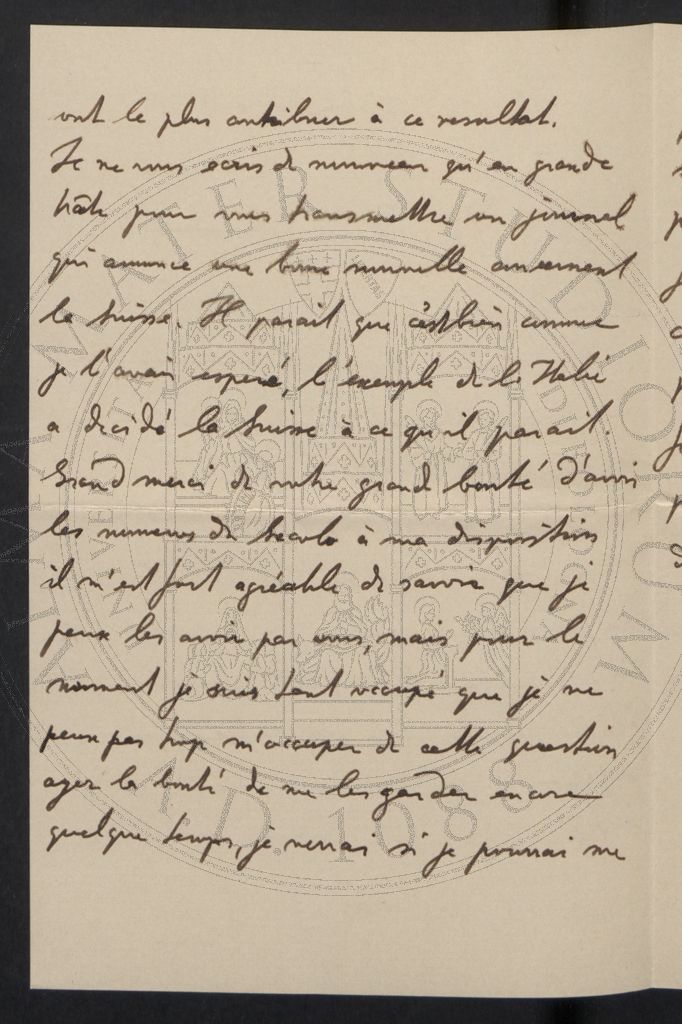 ont le plus contribuer à ce resultat.
Je ne vous ecris de nouveau qu'en grande
hâte pour vous transmettre un journal
qui annonce une bonne nouvelle concernent
la Suisse. Il parait que c'est bien comme
je l'avais esperé, l'exemple de l'Italie
a décidé la Suisse à ce qu'il parait.
Grand merci de votre grand bonté d'avoir
les numeros du Secolo à ma disposition
il m'est fort agréable de savoir que je
peux les avoir par vous, mais pour le
moment je suis tant occupé que je ne
peux pas trop m'occuper de cette question
ayez la bonté de me les garder encore
quelque temps, je verrai si je pourrai me
ALMA MATER STUDIORUM
A.D. 1088